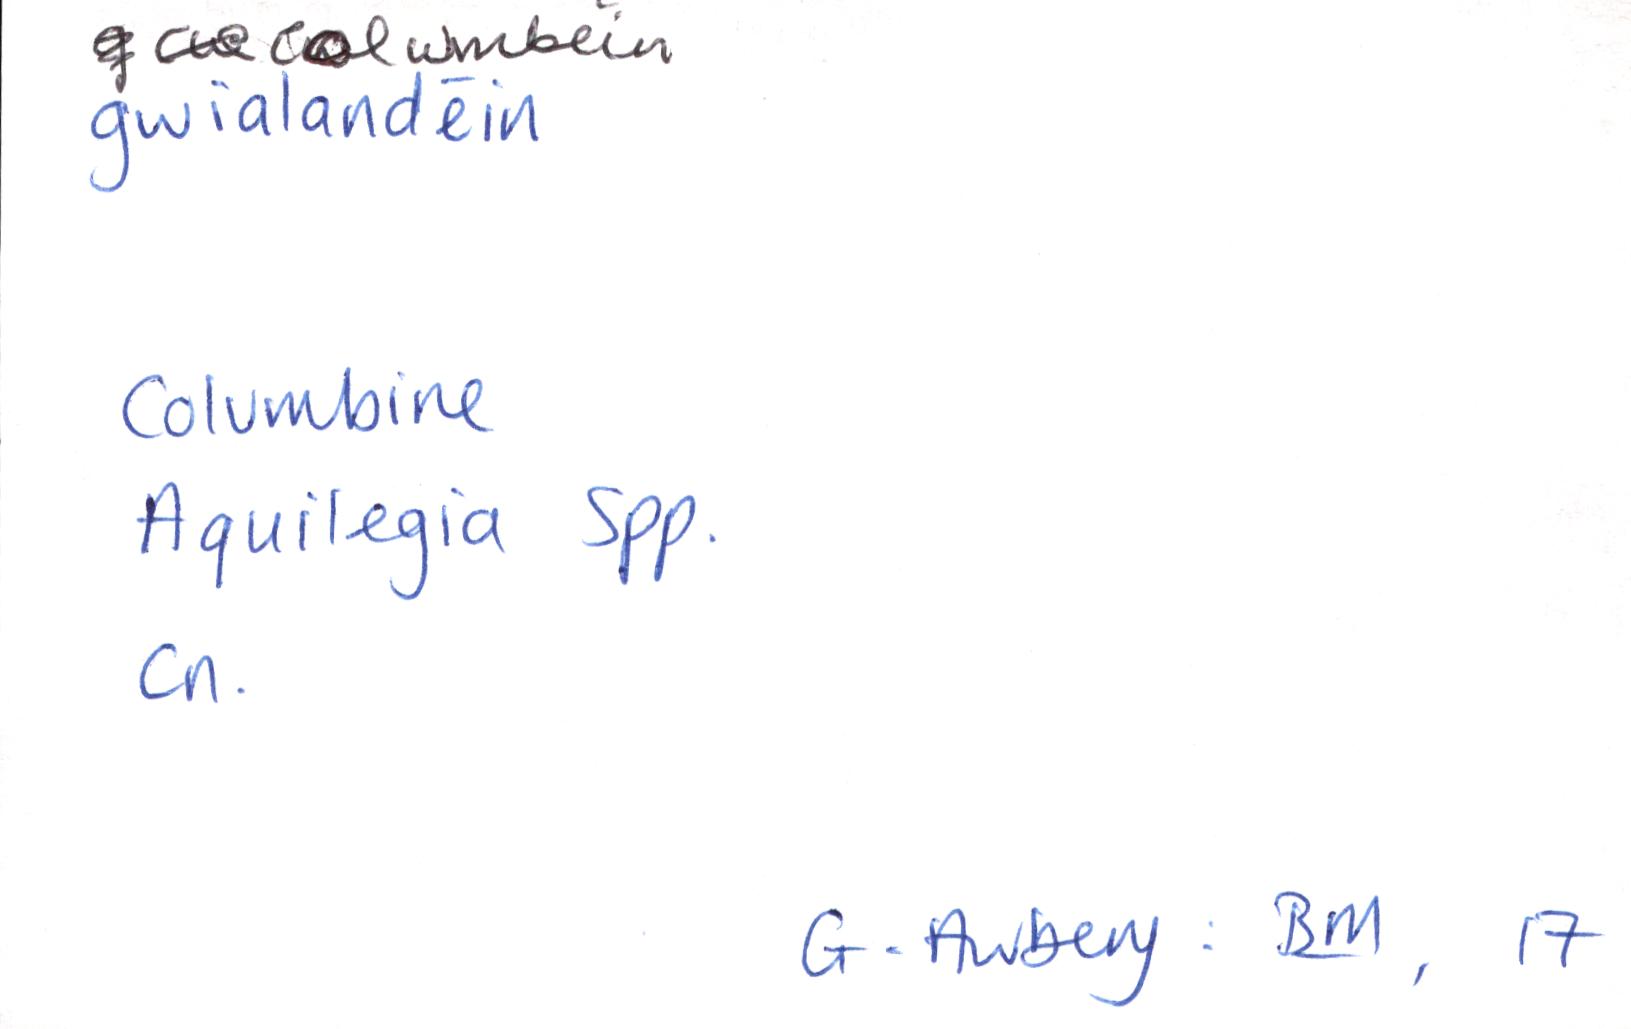 columbein
gwïalandēin
Columbine
Aquilegia Spp.
Cn.
G. Awbery : BM, 17